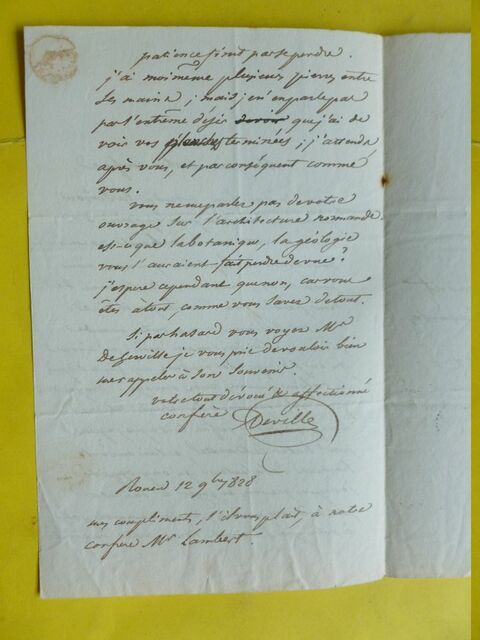 patience finit par se perdre.
j'ai moi même plusieurs pierres entre
les mains ; mais je n'en parle pas
par l'extrême désir devoir que j'ai de
voir vos planches terminées ; j'attends
après vous, et par conséquent comme
vous.
vous ne me parlez pas de votre
ouvrage sur l'architecture normande.
est-ce que la botanique, la géologie
vous l'auraient fait perdre de vue ?
j'espère cependant que non, car vous
êtes à tout, comme vous savez de tout.
Si par hasard vous voyez Mr
De Gerville je vous prie de vouloir bien
me rappeler à son souvenir.
votre tout dévoué & affectionné
confrère Deville
Rouen 12 9bre 1828
mes compliments, s'il vous plait, à notre
confrère Mr Lambert.